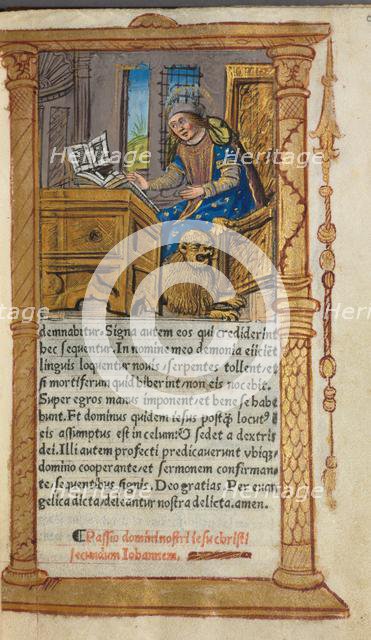 demnabitur. Signa autem eos qui crediderint
hec sequentur. In nomine meo demonia eiicient
linguis loquentur nouis, serpentes tollent: et
si mortiferum quid biberint non eis nocebit.
Super egros manus imponent: et bene se habe
bunt. Et dominus quidem iesus postꝗ̃ locutꝰ
eis assumptus est in celum: & sedet a dextris
dei. Illi autem profecti predicauerunt vbiqꝫ
domino cooperante, et sermonem confirman-
te, sequentibus signis. Deo gratias. Per euan
gelica dicta, deleantur nostra delicta. amen.
Passio domini nostri iesu christi
secundum Iohannem.
Heritage
Heritage
Heritage
Heritage
Heritage
Heritage